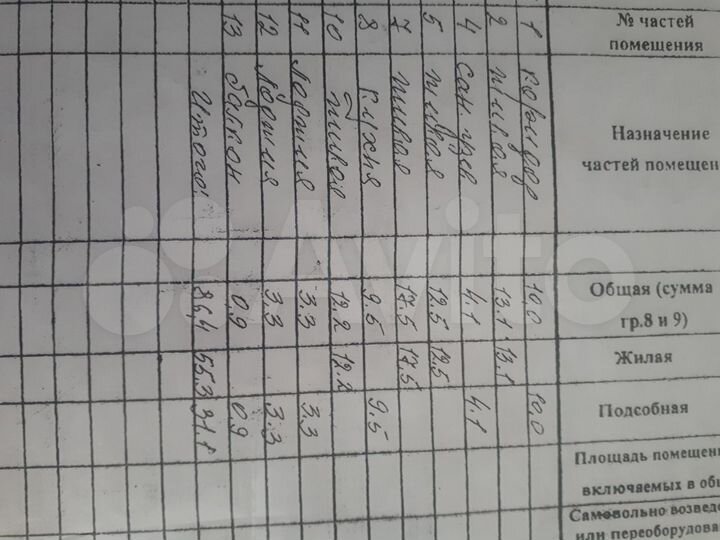 № частей
помещения
Назначение
частей помещен
Общая (сумма
гр.8 и 9)
Жилая
Подсобная
Площадь помещени
включаемых в об
Самовольно возведе
или переоборудова
1 коридор 10,0 10,0
2 жилая 13.1 13.1
4 сан.узел 4.1 4.1
5 жилая 12.5 12.5
7 жилая 17.5 17.5
8 кухня 9.5 9.5
10 жилая 12.2 12.2
11 лоджия 3.3 3.3
12 лоджия 3.3 3.3
13 балкон 0,9 0,9
Итого: 86,4 55.3 31.1
Avito